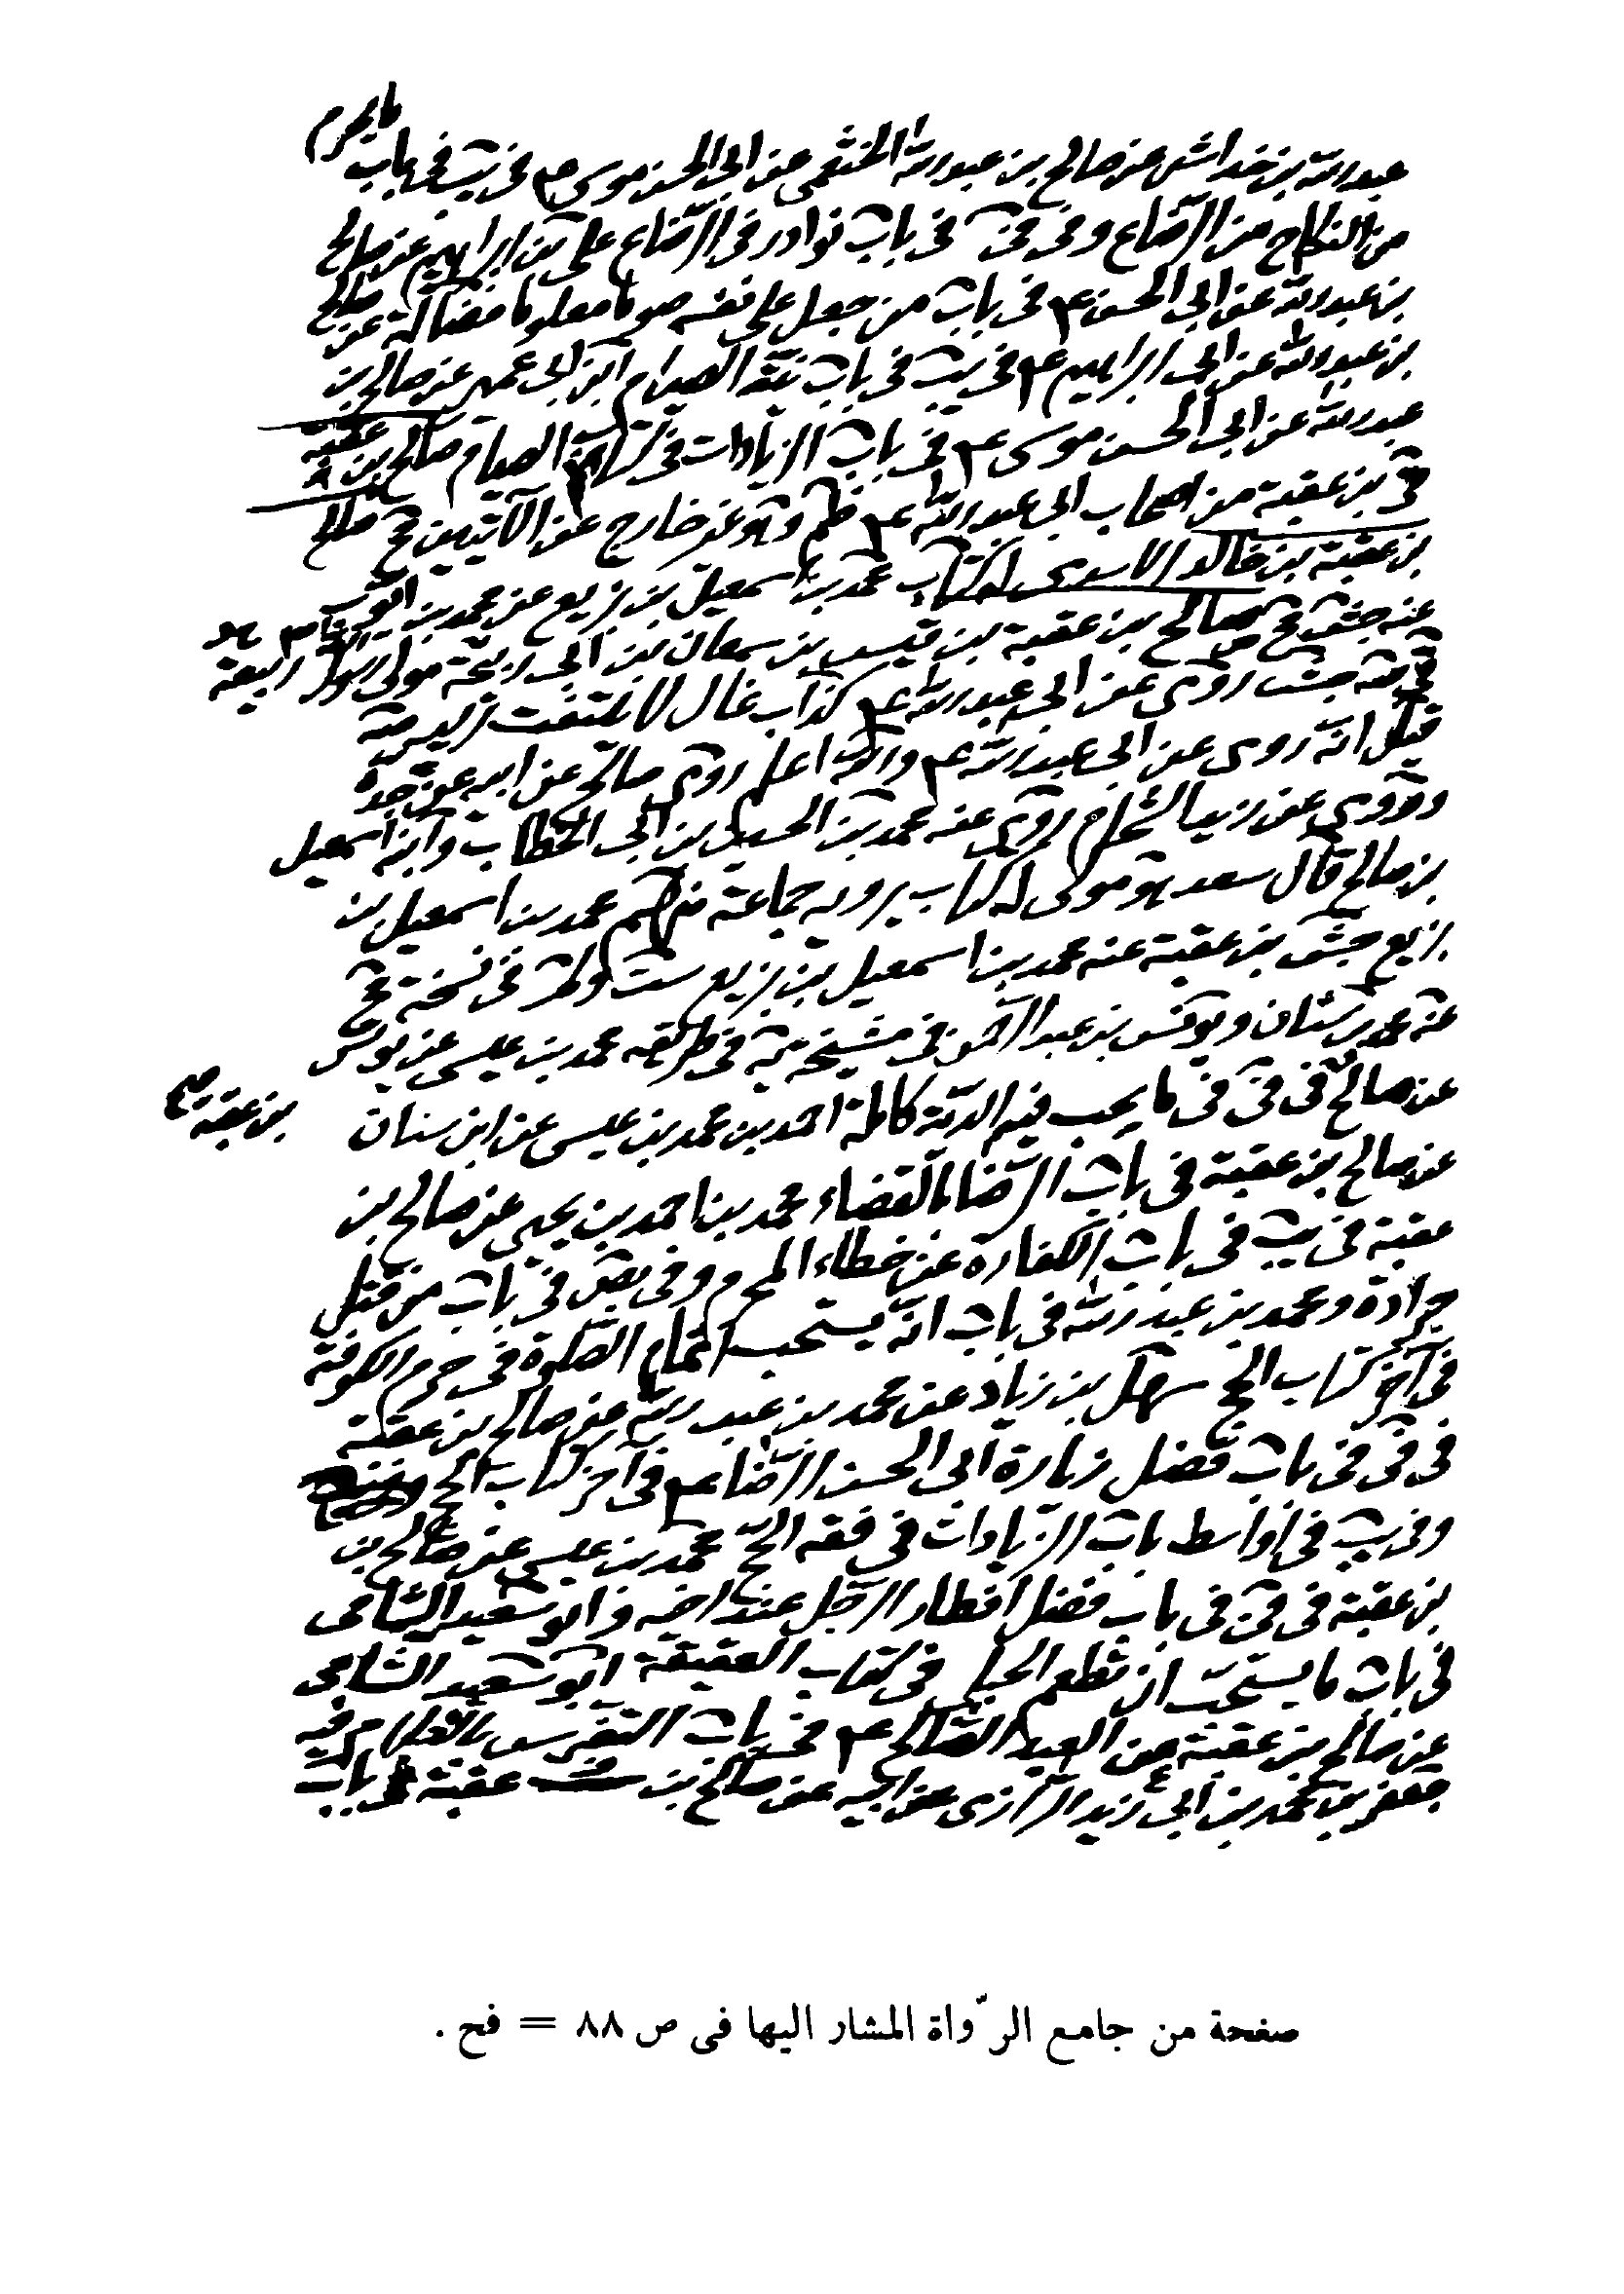 ما يحرم
عبد الله بن خداش عن صالح بن عبد الله الخثعمى عن ابى الحسن موسى ع م فى يب فى باب
من النكاح من الرضاع وفى فى فى باب نوادر فى الرضاع على بن ابراهيم عن صالح
بن عبد الله عن ابى الحسن ع م فى باب من جعل على نفسه صوما معلوما فضالة عن صالح
بن عبد الله عن ابى ابراهيم ع م فى يب فى باب نية الصيام ابن ابى عمير عن صالح بن
عبد الله عن ابى الحسن موسى ع م فى باب الزيادات فى كتاب الصيام صالح بن عقبة
ق بن عقبة من اصحاب ابى عبد الله ع م وهو غير خارج عن الآتيين مح صالح
بن عقبة بن خالد الاسدى له كتاب محمد بن اسمعيل بن بزيع عن محمد بن ايوب
عنه جش مح صالح بن عقبة بن قيس بن سمعان بن ابى ربيحة مولى رسول الله
روى عن ابى عبد الله ع م كذاب غال لا يلتفت اليه
قيل انه روى عن ابى عبد الله ع م والله اعلم روى صالح عن ابيه عن جده
وروى عن زيد الشحام روى عنه محمد بن الحسين بن ابى الخطاب وابنه اسمعيل
بن صالح قال سعد هو مولى له كتاب يرويه جماعة منهم محمد بن اسمعيل بن
بزيع جش بن عقبة عنه محمد بن اسمعيل بن بزيع ست وفى نسخة مح
عنه محمد بن سنان ويونس بن عبد الرحمن فى مشيخة يه فى طريقه محمد بن عيسى عن يونس
عن صالح فى فى فى ما يجب فيه الدية كاملة احمد بن محمد بن عيسى عن ابن سنان بن عقبة صح
عن صالح بن عقبة فى باب الرضا بالقضاء محمد بن احمد بن يحيى عن صالح بن
عقبة فى يب فى باب الكفارة عن خطاء المحرم وفى بص فى باب من قتل
جرادة ومحمد بن عبد الله فى باب انه يستحب اتمام الصلوة فى حرم الكوفة
فى آخر كتاب الحج سهل بن زياد عن محمد بن عبد الله عن صالح بن عقبة
فى فى فى باب فضل زيارة ابى الحسن الرضا ع م فى آخر كتاب الحج
وفى يب فى اواسط باب الزيادات فى فقه الحج محمد بن عيسى عن صالح بن
بن عقبة فى فى فى باب فضل افطار الرجل عند اخيه وابو سعيد الشامى
فى باب ما يستحب ان تطعم الحبلى فى كتاب العقيقة ابو سعيد الشامى
عن صالح بن عقبة عن العبد الصالح ع م فى باب
جعفر بن محمد بن ابى زيد الرازى عن ابيه عن صالح بن عقبة فى باب
صفحة من جامع الرّواة المشار اليها فى ص ٨٨ = فح .